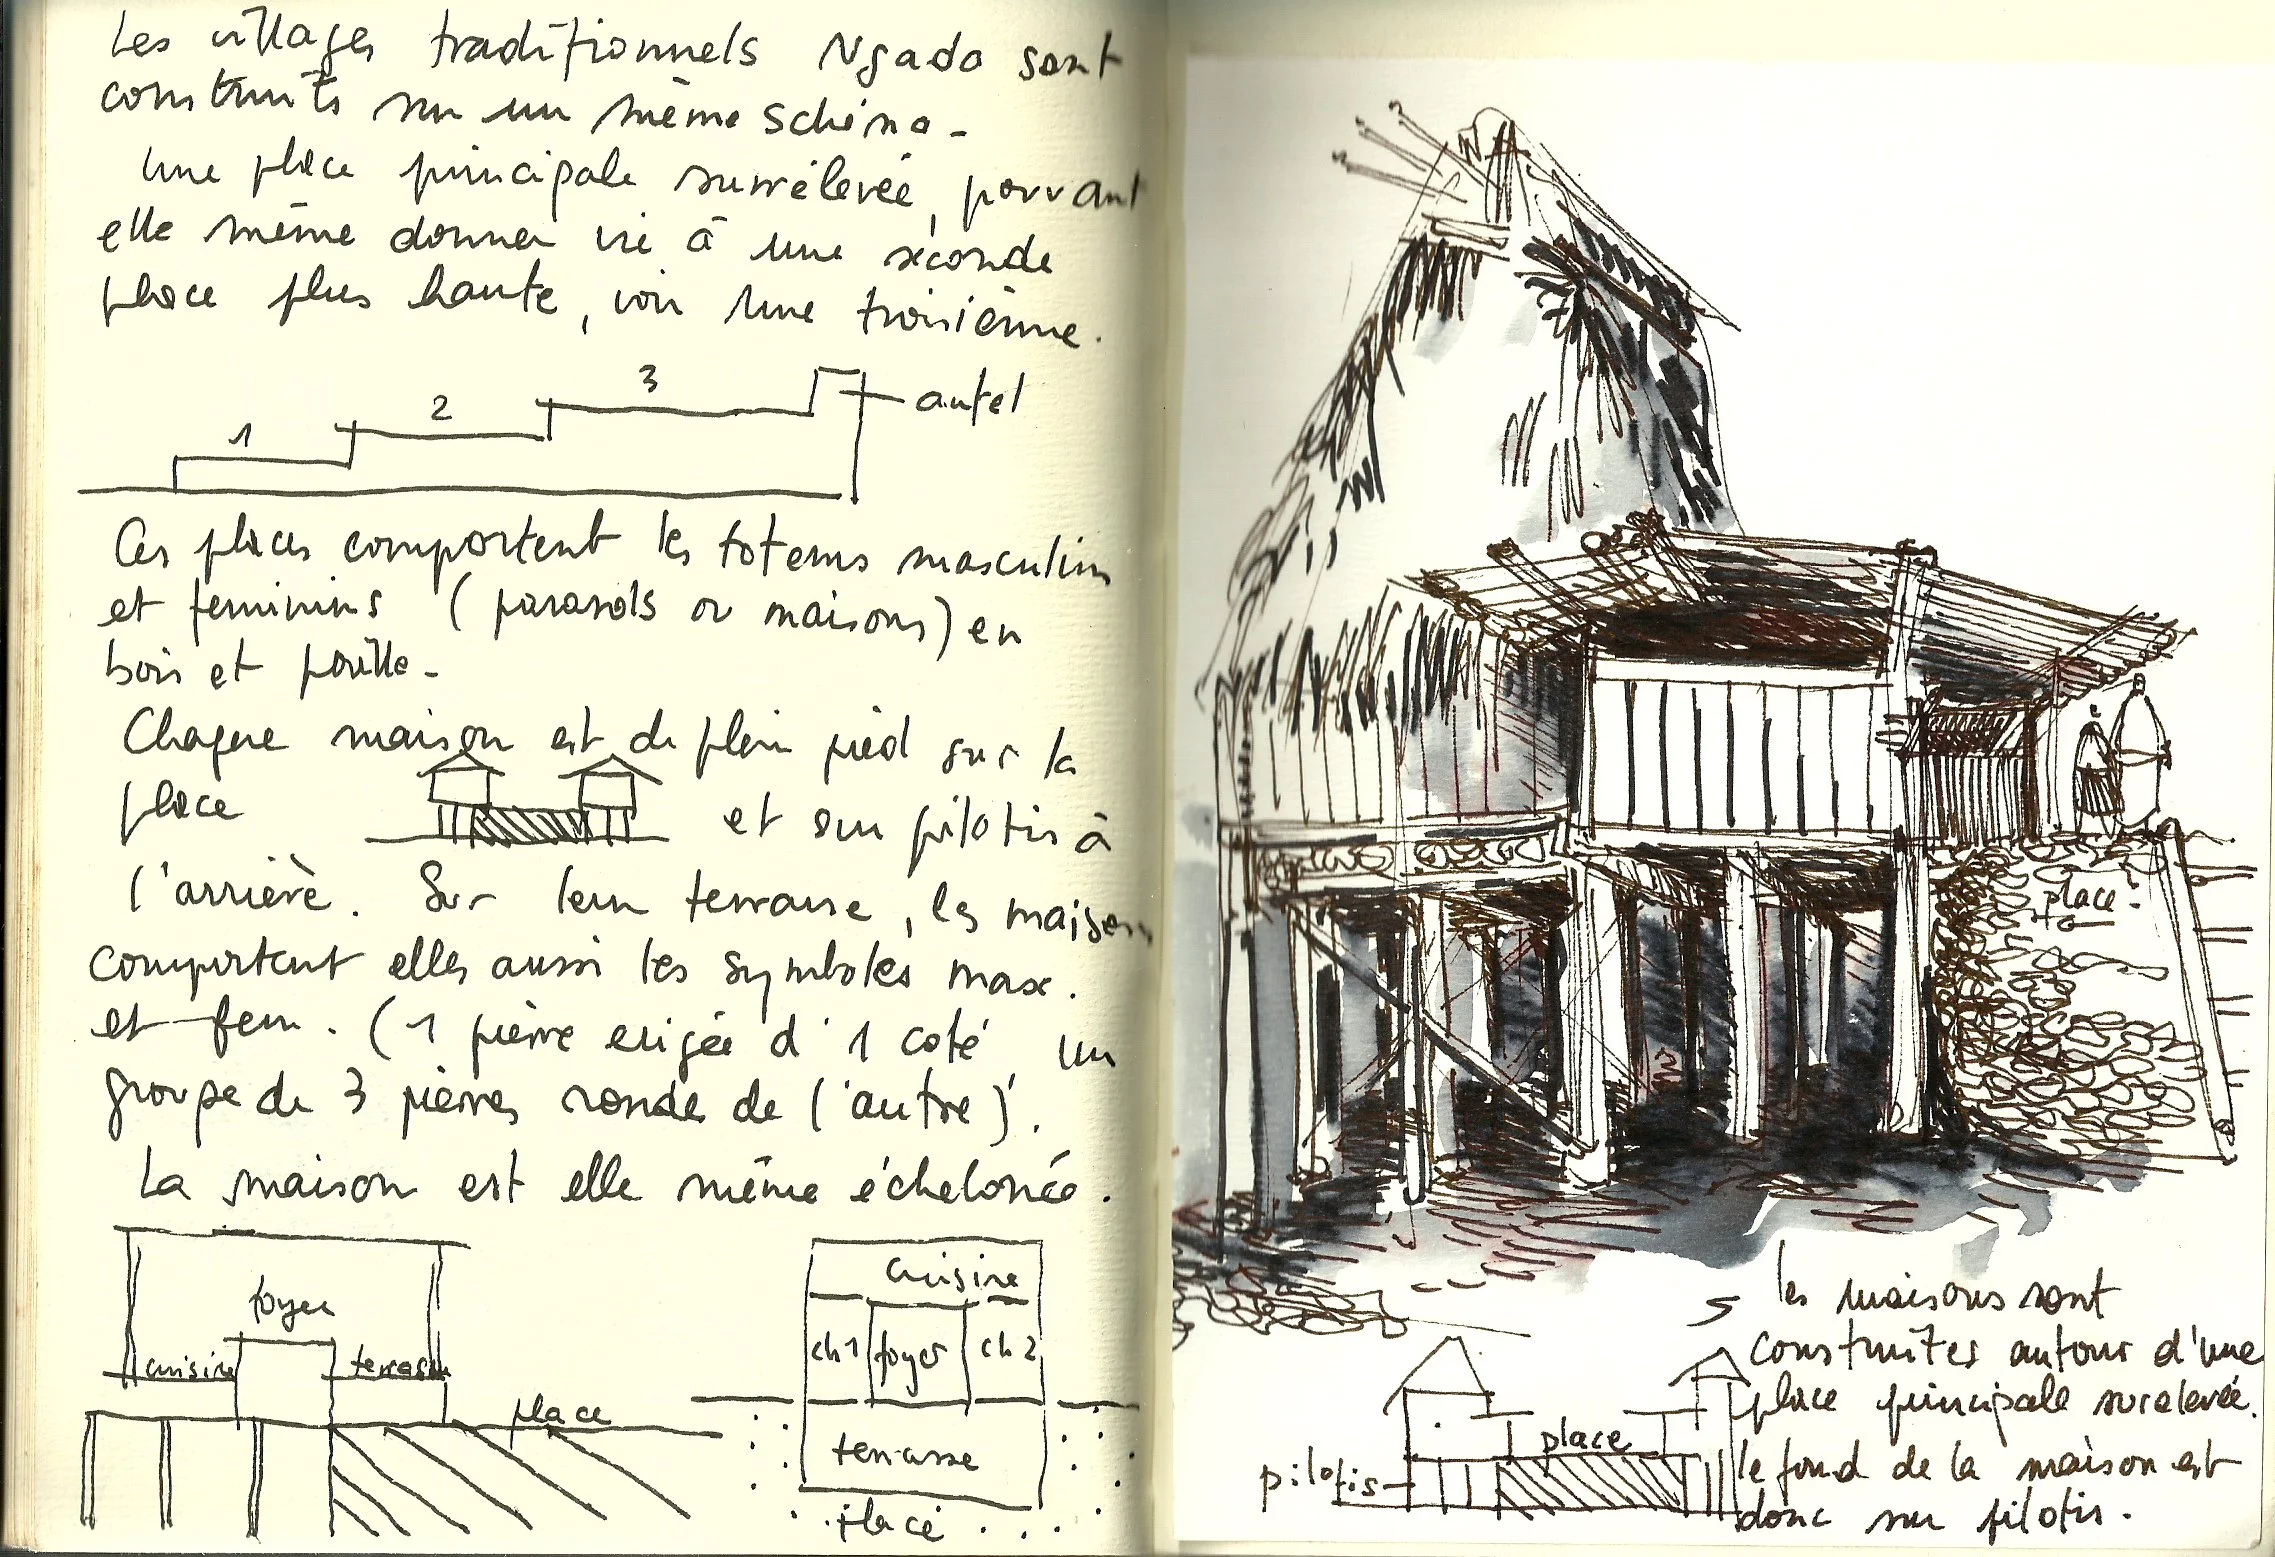 Les villages traditionnels Ngada sont
construits sur un même schéma.
Une place principale surrélevée, pouvant
elle même donner vie à une seconde
place plus haute, voir une troisième.
1
2
3
autel
Ces places comportent les totems masculins
et feminins (parasols ou maisons) en
bois et paille.
Chaque maison est de plein pied sur la
place
et sur pilotis à
l'arrière. Sur leur terrasse, les maisons
comportent elles aussi les symboles masc.
et fem. (1 pierre erigée d'1 coté, un
groupe de 3 pierres ronde de l'autre).
La maison est elle même échelonée.
foyer
cuisine
terrasse
place
cuisine
ch1
foyer
ch2
terrasse
place
place
les maisons sont
construites autour d'une
place principale surelevée.
le fond de la maison est
donc sur pilotis.
place
pilotis